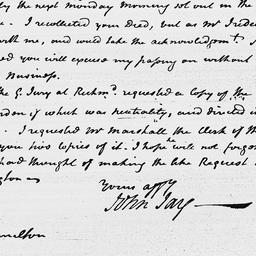 the next monday morning set out on the
e. I recollected your Deed, but as Mr Frederi
with me, and would take the acknowledgmt.
ed you will excuse my passing on without
Business.
the G. Jury at Richmd. requested a Copy of the
of which was neutrality, and directed it
. I requested Mr Marshall the Clerk of th
you two copies of it. I hope he will not forgo
had thought of making the like Request
yours affly
John Jay
amilton